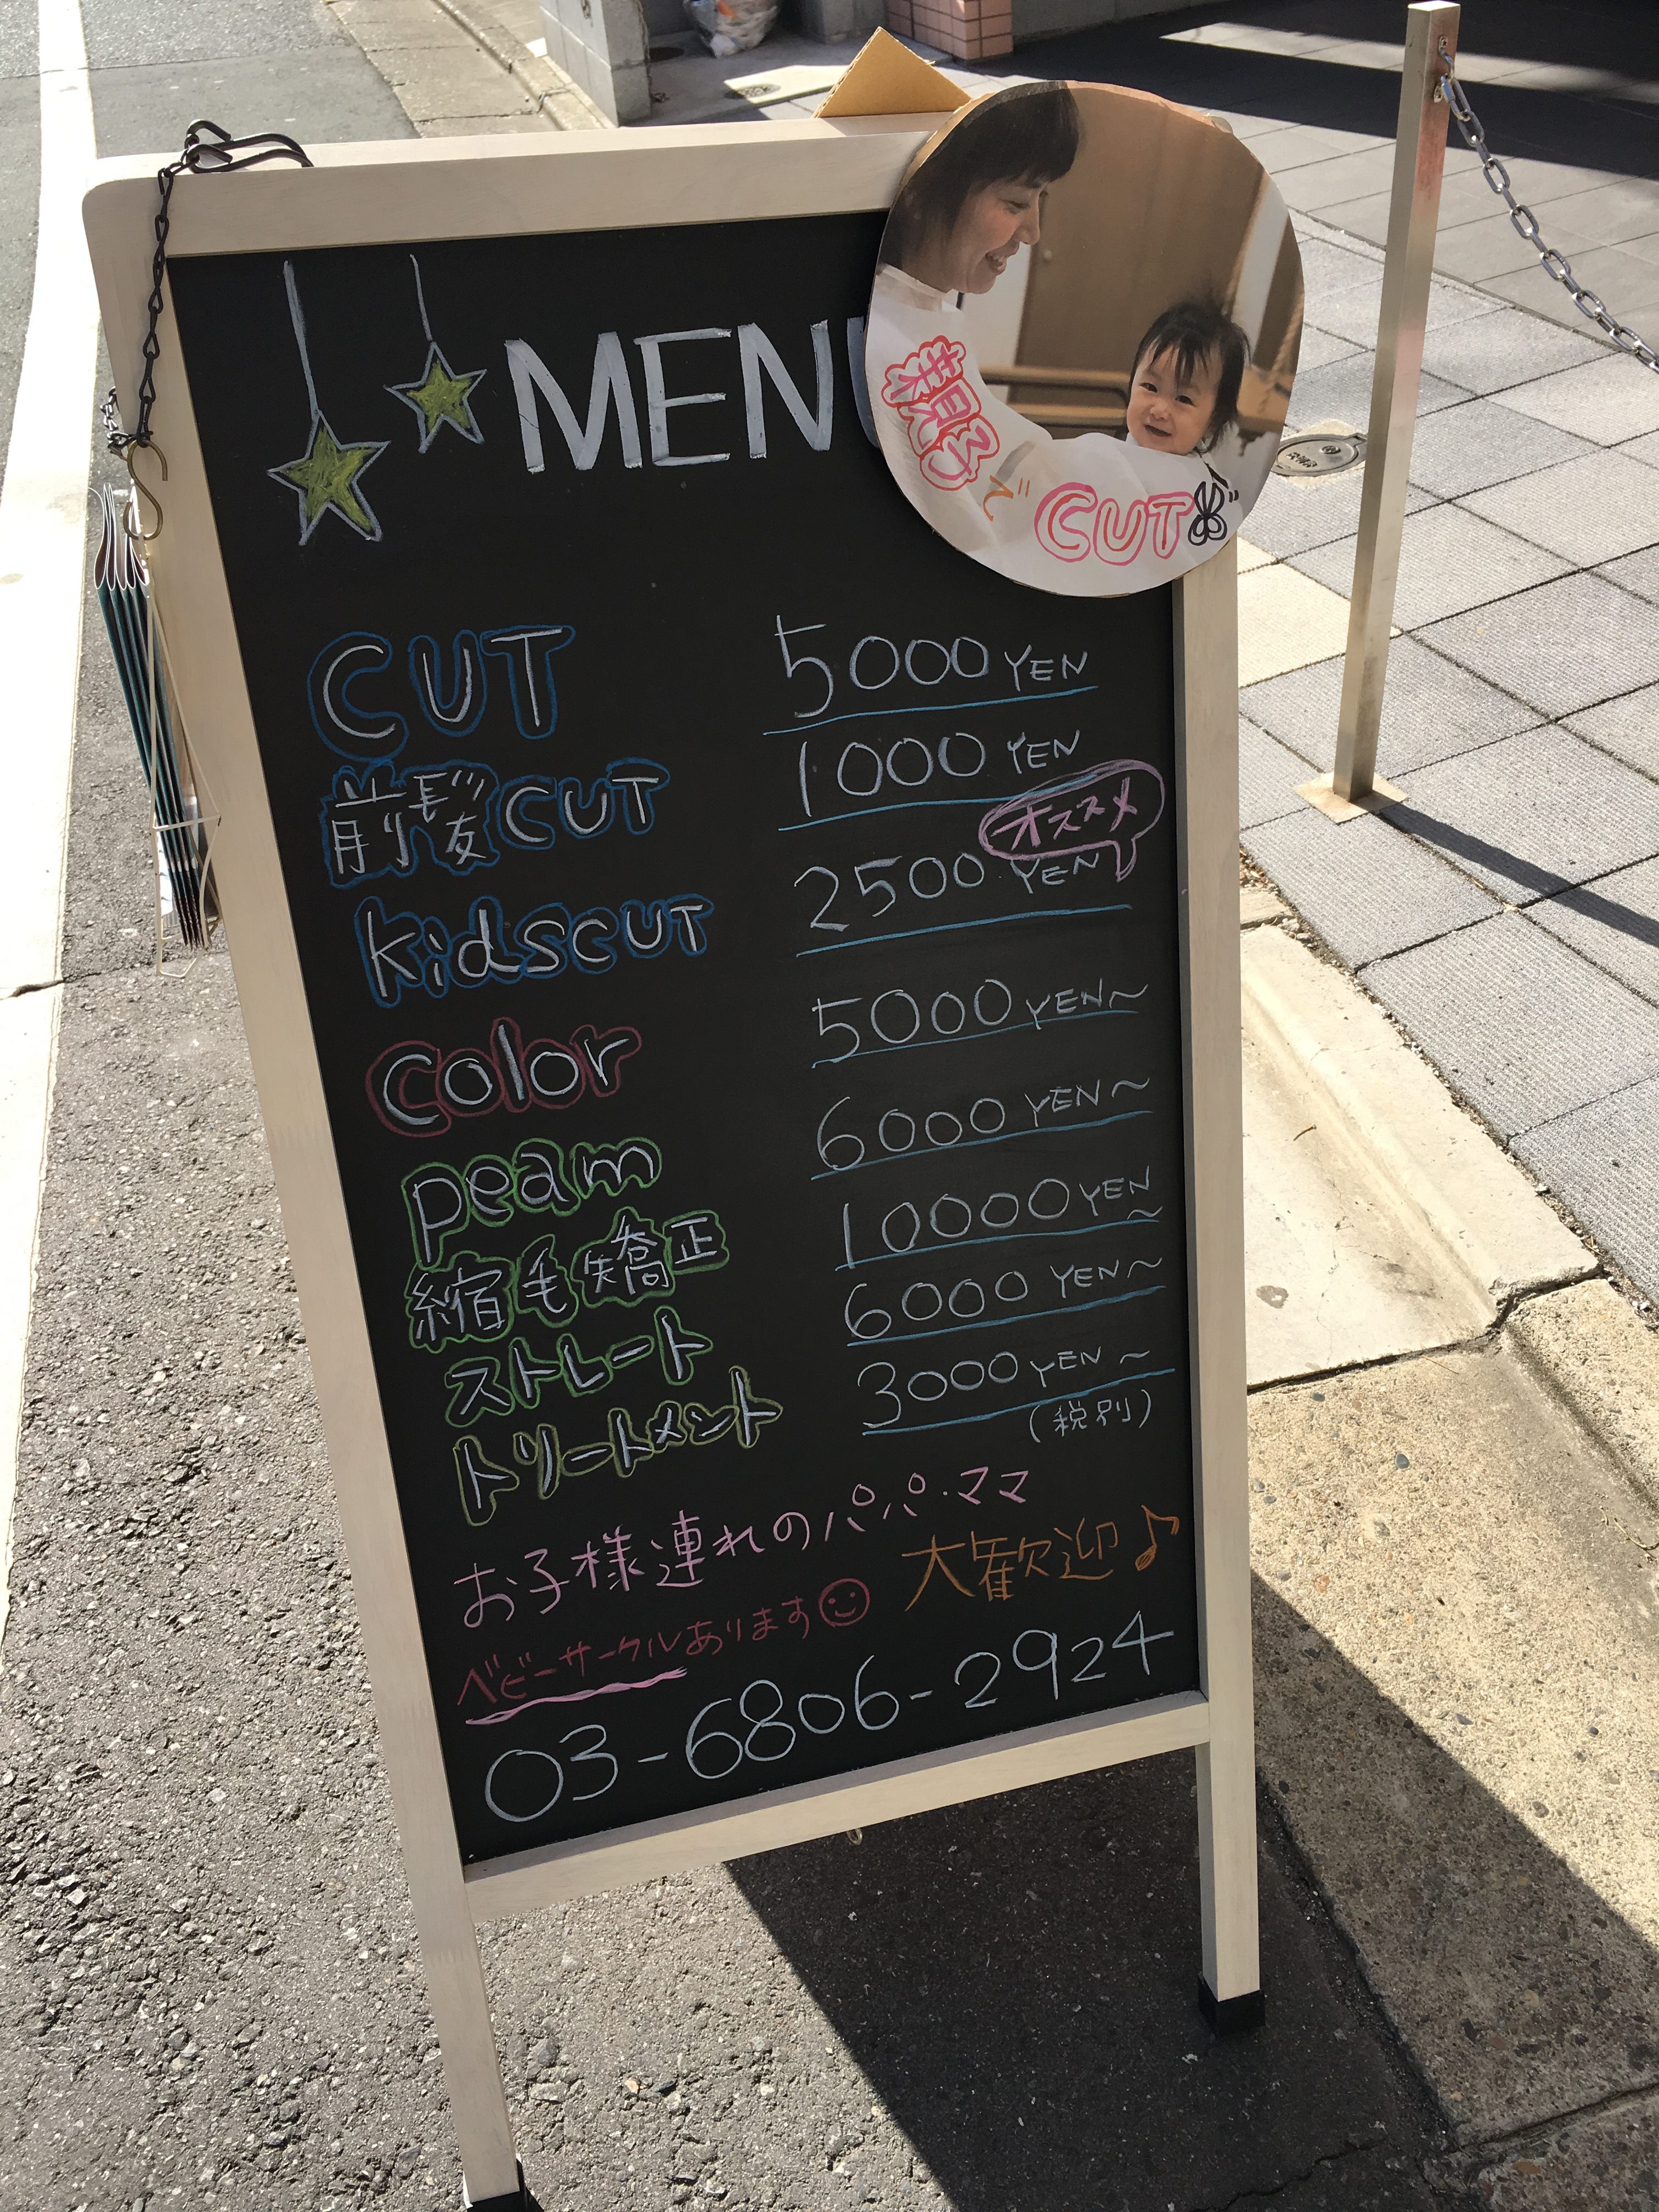 MENU
親子で CUT
CUT 5000 YEN
前髪CUT 1000 YEN
オススメ
kidscUT 2500 YEN
color 5000 YEN~
peam 6000 YEN~
縮毛矯正 10000 YEN~
ストレート 6000 YEN~
トリートメント 3000 YEN~
(税別)
お子様連れのパパ・ママ
大歓迎♪
ベビーサークルあります
03-6806-2924